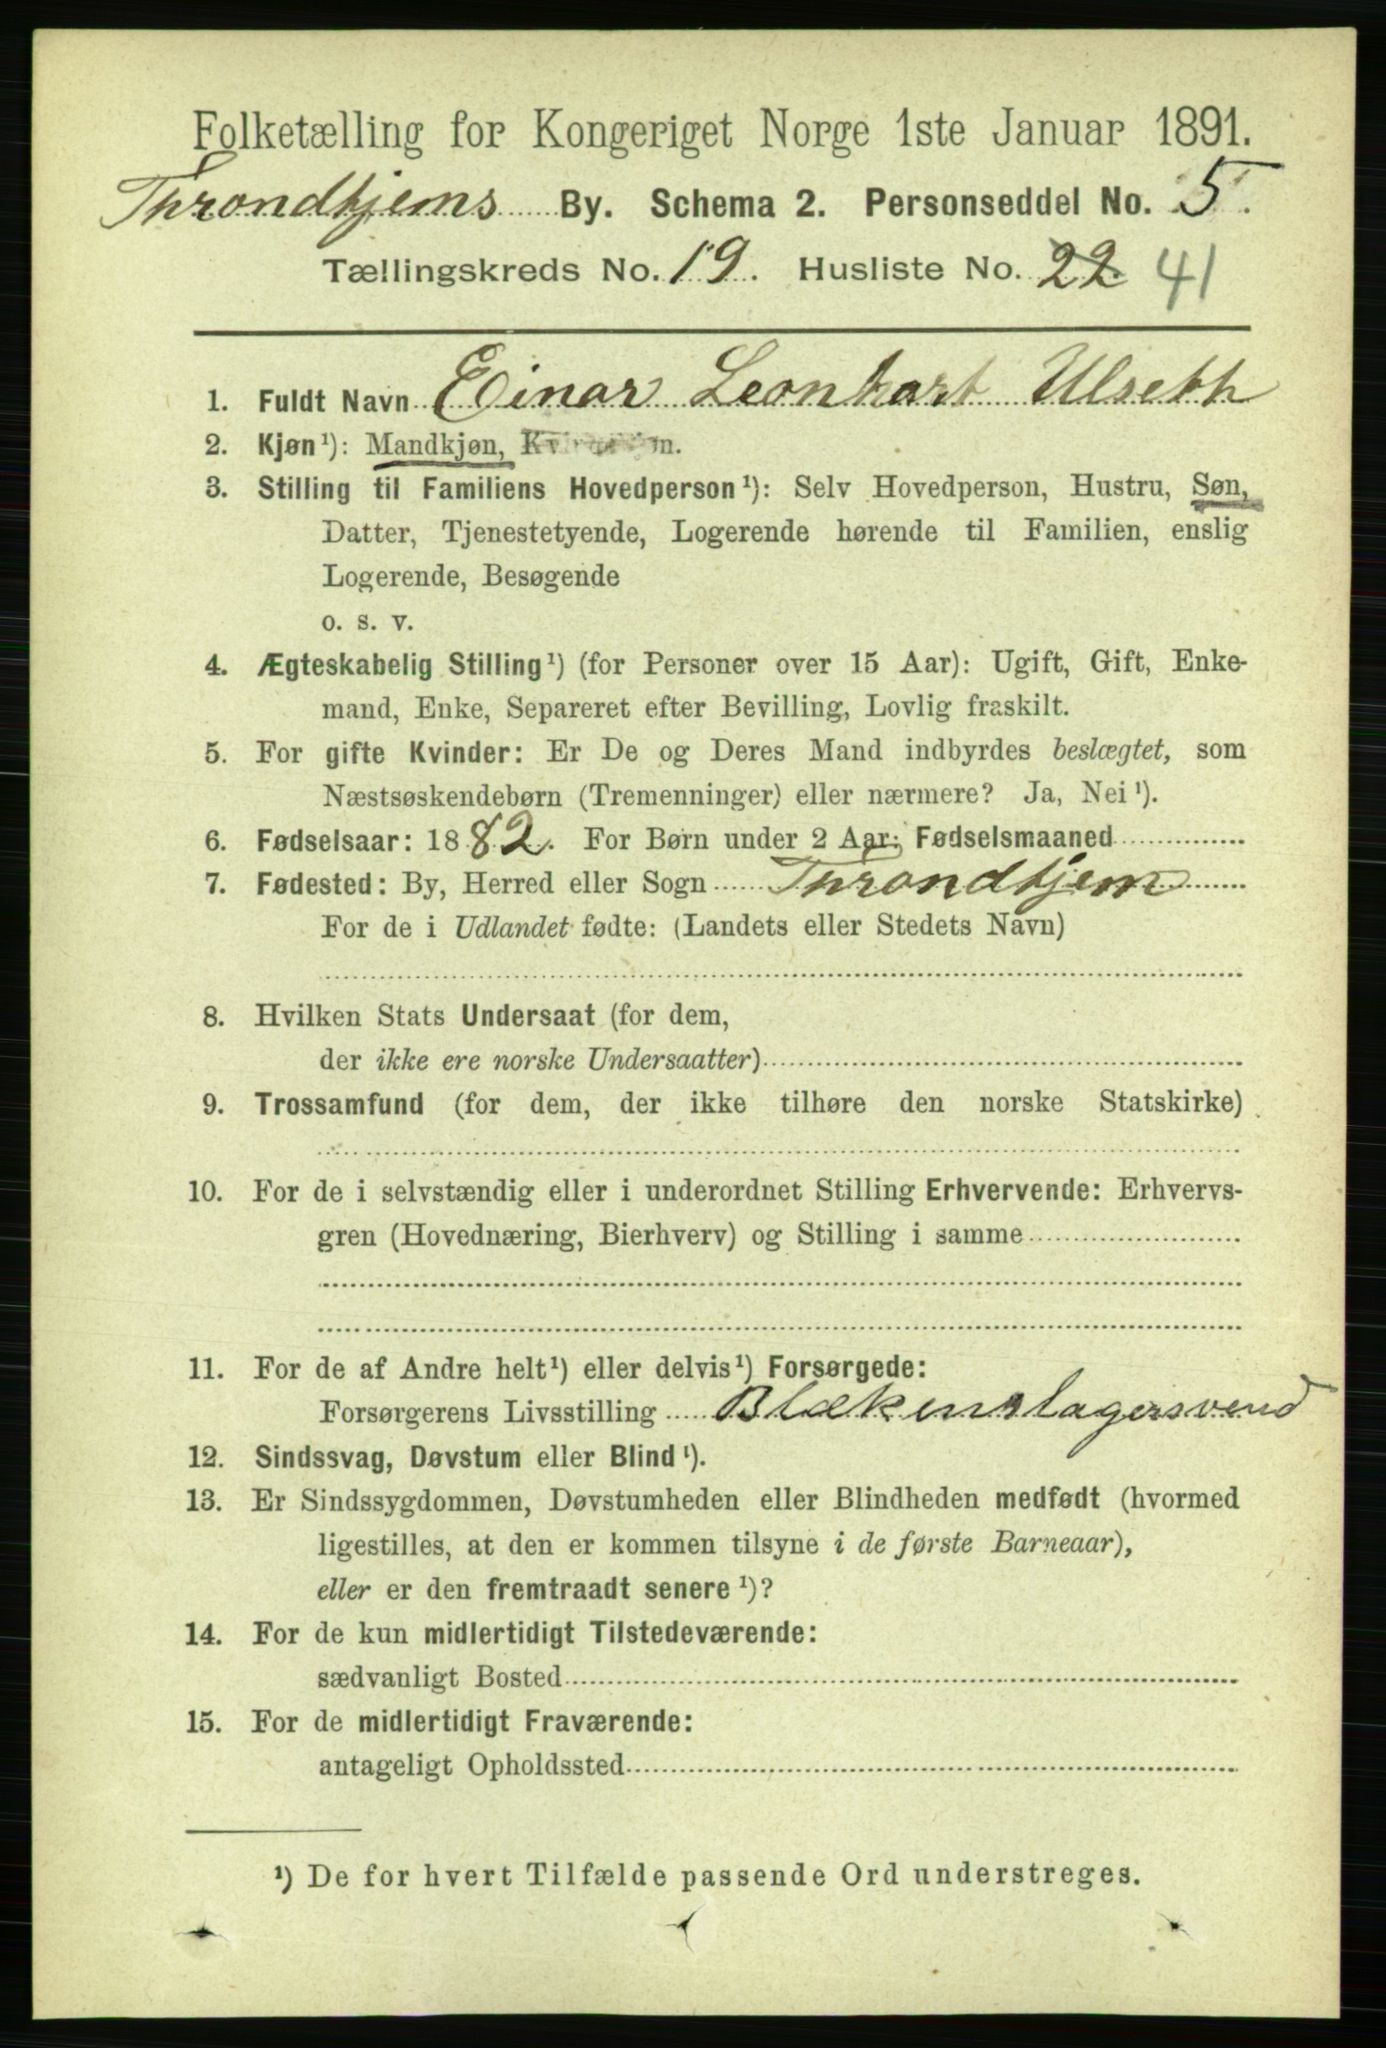 Folketælling for Kongeriget Norge 1ste Januar 1891.
Throndhjems By. Schema 2. Personseddel No. 5.
Tællingskreds No. 19. Husliste No. 22 41
1. Fuldt Navn Einar Leonhart Ulseth
2. Kjøn¹): Mandkjøn,
3. Stilling til Familiens Hovedperson¹): Selv Hovedperson, Hustru, Søn,
Datter, Tjenestetyende, Logerende hørende til Familien, enslig
Logerende, Besøgende
o. s. v.
4. Ægteskabelig Stilling¹) (for Personer over 15 Aar): Ugift, Gift, Enke-
mand, Enke, Separeret efter Bevilling, Lovlig fraskilt.
5. For gifte Kvinder: Er De og Deres Mand indbyrdes beslægtet, som
Næstsøskendebørn (Tremenninger) eller nærmere? Ja, Nei¹).
6. Fødselsaar: 1882. For Børn under 2 Aar: Fødselsmaaned
7. Fødested: By, Herred eller Sogn Throndhjem
For de i Udlandet fødte: (Landets eller Stedets Navn)
8. Hvilken Stats Undersaat (for dem,
der ikke ere norske Undersaatter)
9. Trossamfund (for dem, der ikke tilhøre den norske Statskirke)
10. For de i selvstændig eller i underordnet Stilling Erhvervende: Erhvervs-
gren (Hovednæring, Bierhverv) og Stilling i samme
11. For de af Andre helt¹) eller delvis¹) Forsørgede:
Forsørgerens Livsstilling Blækenslagersvend
12. Sindssvag, Døvstum eller Blind¹).
13. Er Sindssygdommen, Døvstumheden eller Blindheden medfødt (hvormed
ligestilles, at den er kommen tilsyne i de første Barneaar),
eller er den fremtraadt senere¹)?
14. For de kun midlertidigt Tilstedeværende:
sædvanligt Bosted
15. For de midlertidigt Fraværende:
antageligt Opholdssted
¹) De for hvert Tilfælde passende Ord understreges.